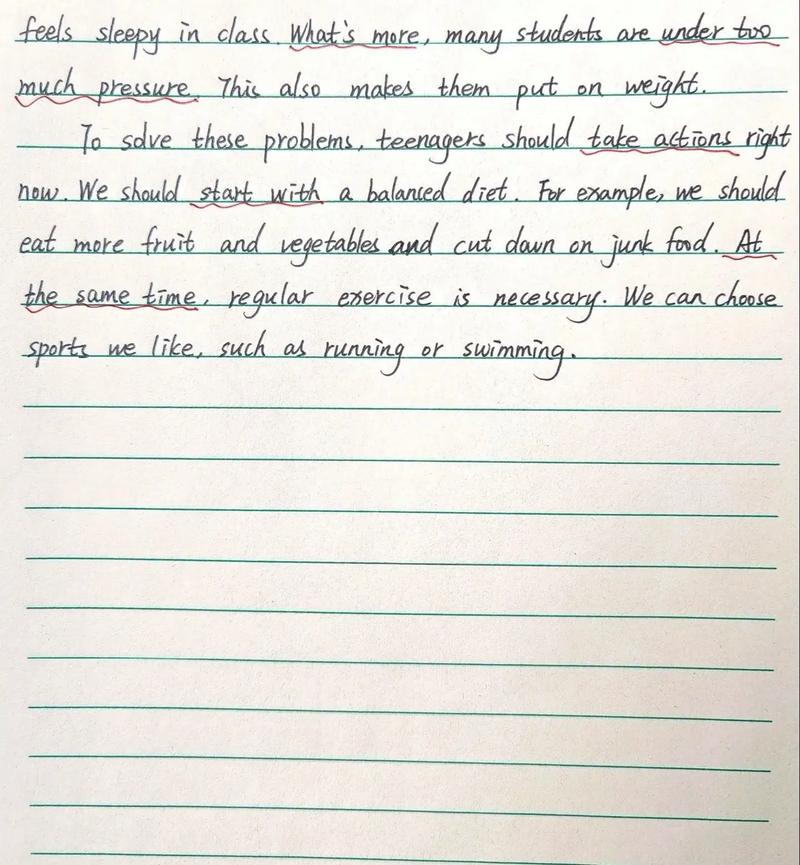 feels sleepy in class. What's more, many students are under too
much pressure. This also makes them put on weight.
To solve these problems, teenagers should take actions right
now. We should start with a balanced diet. For example, we should
eat more fruit and vegetables and cut down on junk food. At
the same time, regular exercise is necessary. We can choose
sports we like, such as running or swimming.